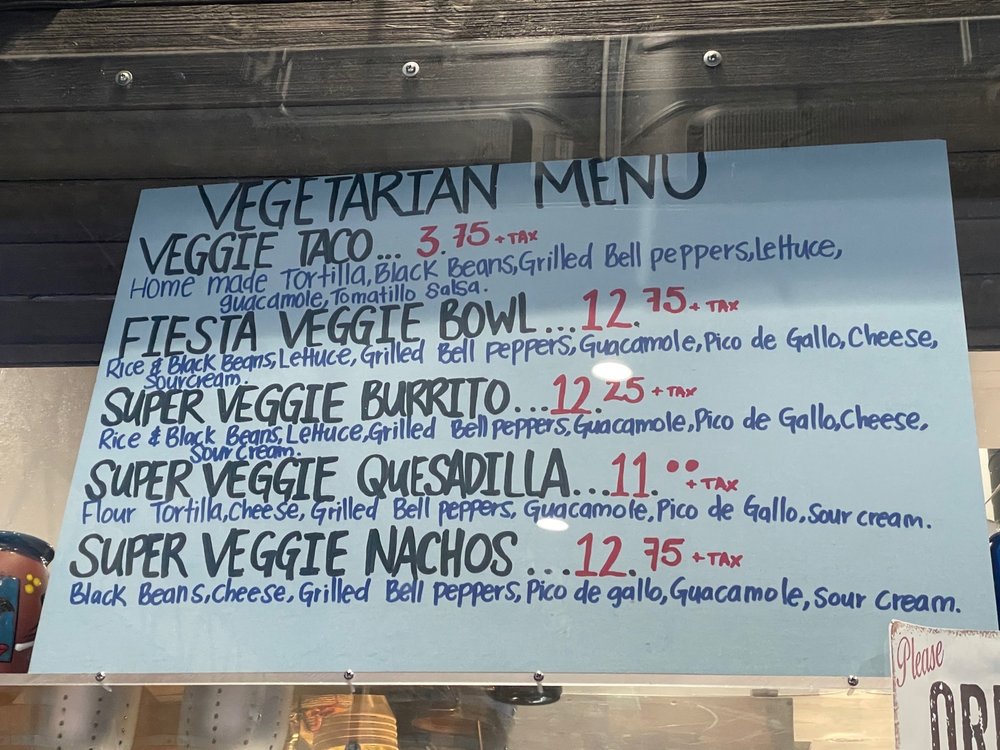 VEGETARIAN MENU
VEGGIE TACO... 3.75 + TAX
Home made Tortilla, Black Beans, Grilled Bell peppers, Lettuce,
guacamole, Tomatillo Salsa.
FIESTA VEGGIE BOWL... 12.75 + TAX
Rice & Black Beans, Lettuce, Grilled Bell peppers, Guacamole, Pico de Gallo, Cheese,
Sour cream.
SUPER VEGGIE BURRITO... 12.25 + TAX
Rice & Black Beans, Lettuce, Grilled Bell peppers, Guacamole, Pico de Gallo, Cheese,
Sour Cream.
SUPER VEGGIE QUESADILLA... 11.00 + TAX
Flour Tortilla, Cheese, Grilled Bell peppers, Guacamole, Pico de Gallo, Sour cream.
SUPER VEGGIE NACHOS ... 12.75 + TAX
Black Beans, cheese, Grilled Bell peppers, Pico de gallo, Guacamole, Sour Cream.
Please